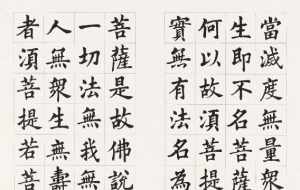 當滅度無量衆
生即不名菩薩
何以故須菩提
實無有法名為
菩薩是故佛說
一切法無我無
人無衆生無壽
者須菩提若菩